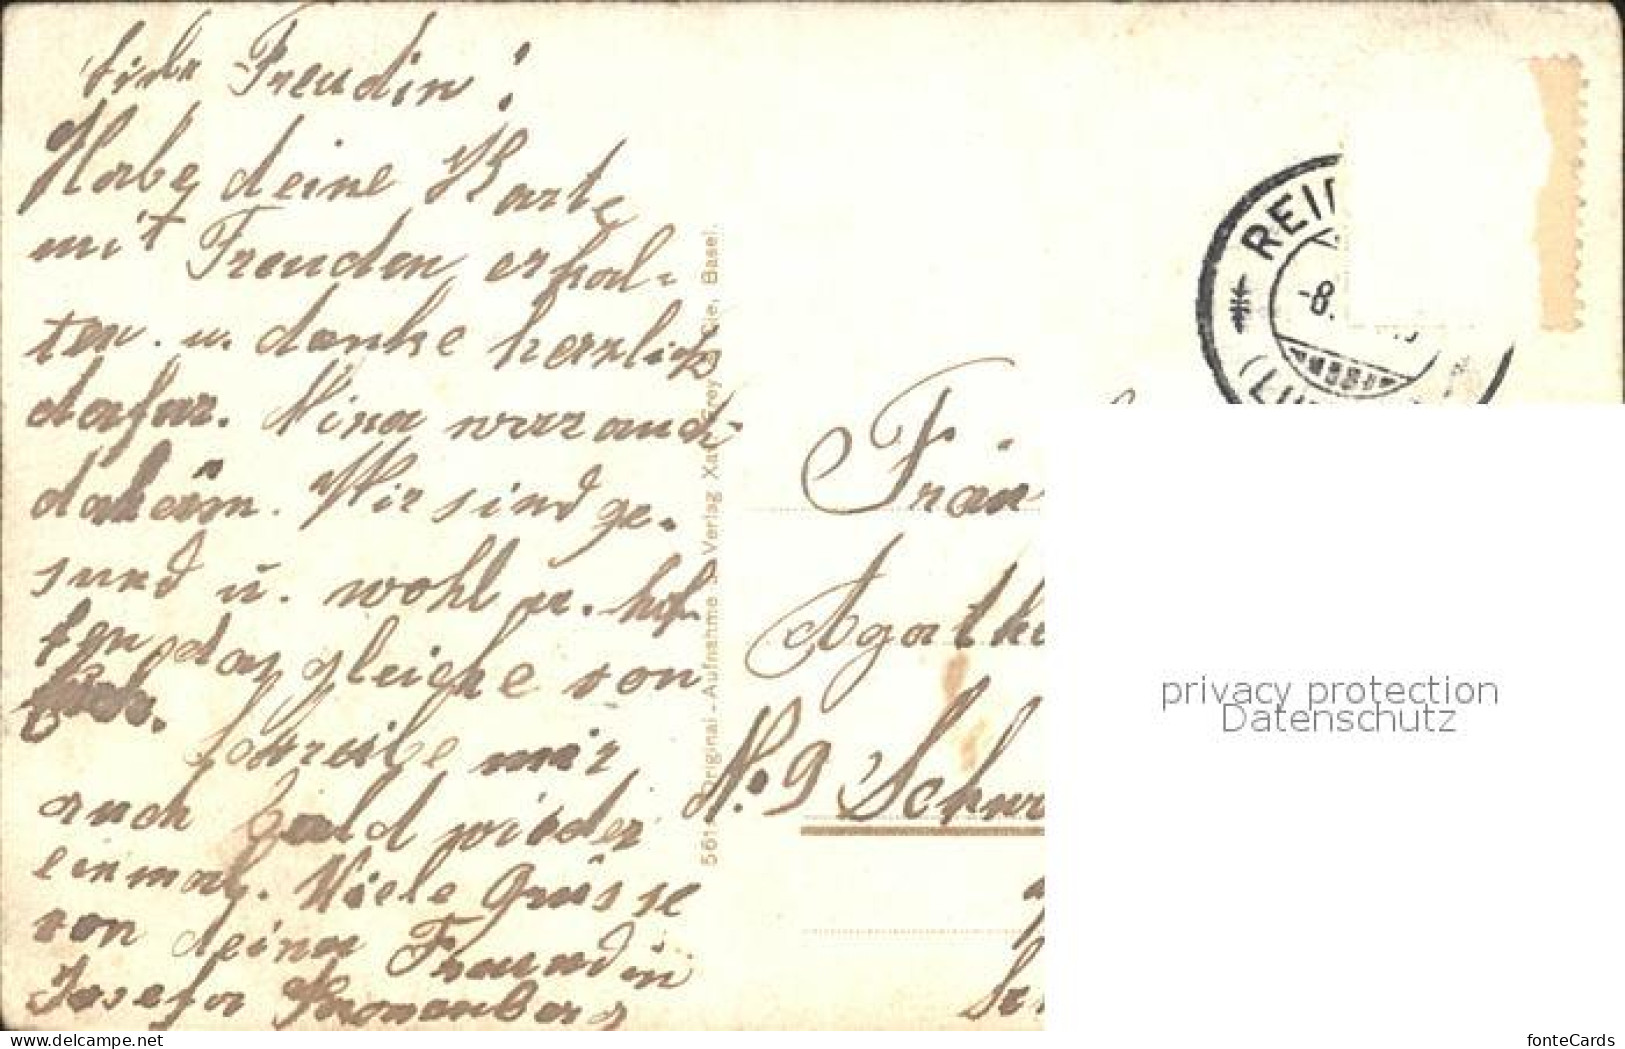 Liebe Freudin!
Habe deine Karte
mit Freuden erhal-
ten. u. danke herzlich
dafar. Nina war auch
daheim. Wir sind ge-
sund u. wohl u. hof-
fen das gleiche von
schreibe mir
auch bald wieder
einmal. Viele Grüsse
von deiner Freundin
Josefa Kronenberg
561 Original-Aufnahme u. Verlag Xav. Frey & Cie., Basel.
REI
-8.
(LU
Frän
Agathe
No 9 Schw
privacy protection
Datenschutz
delcampe.net
fonteCards